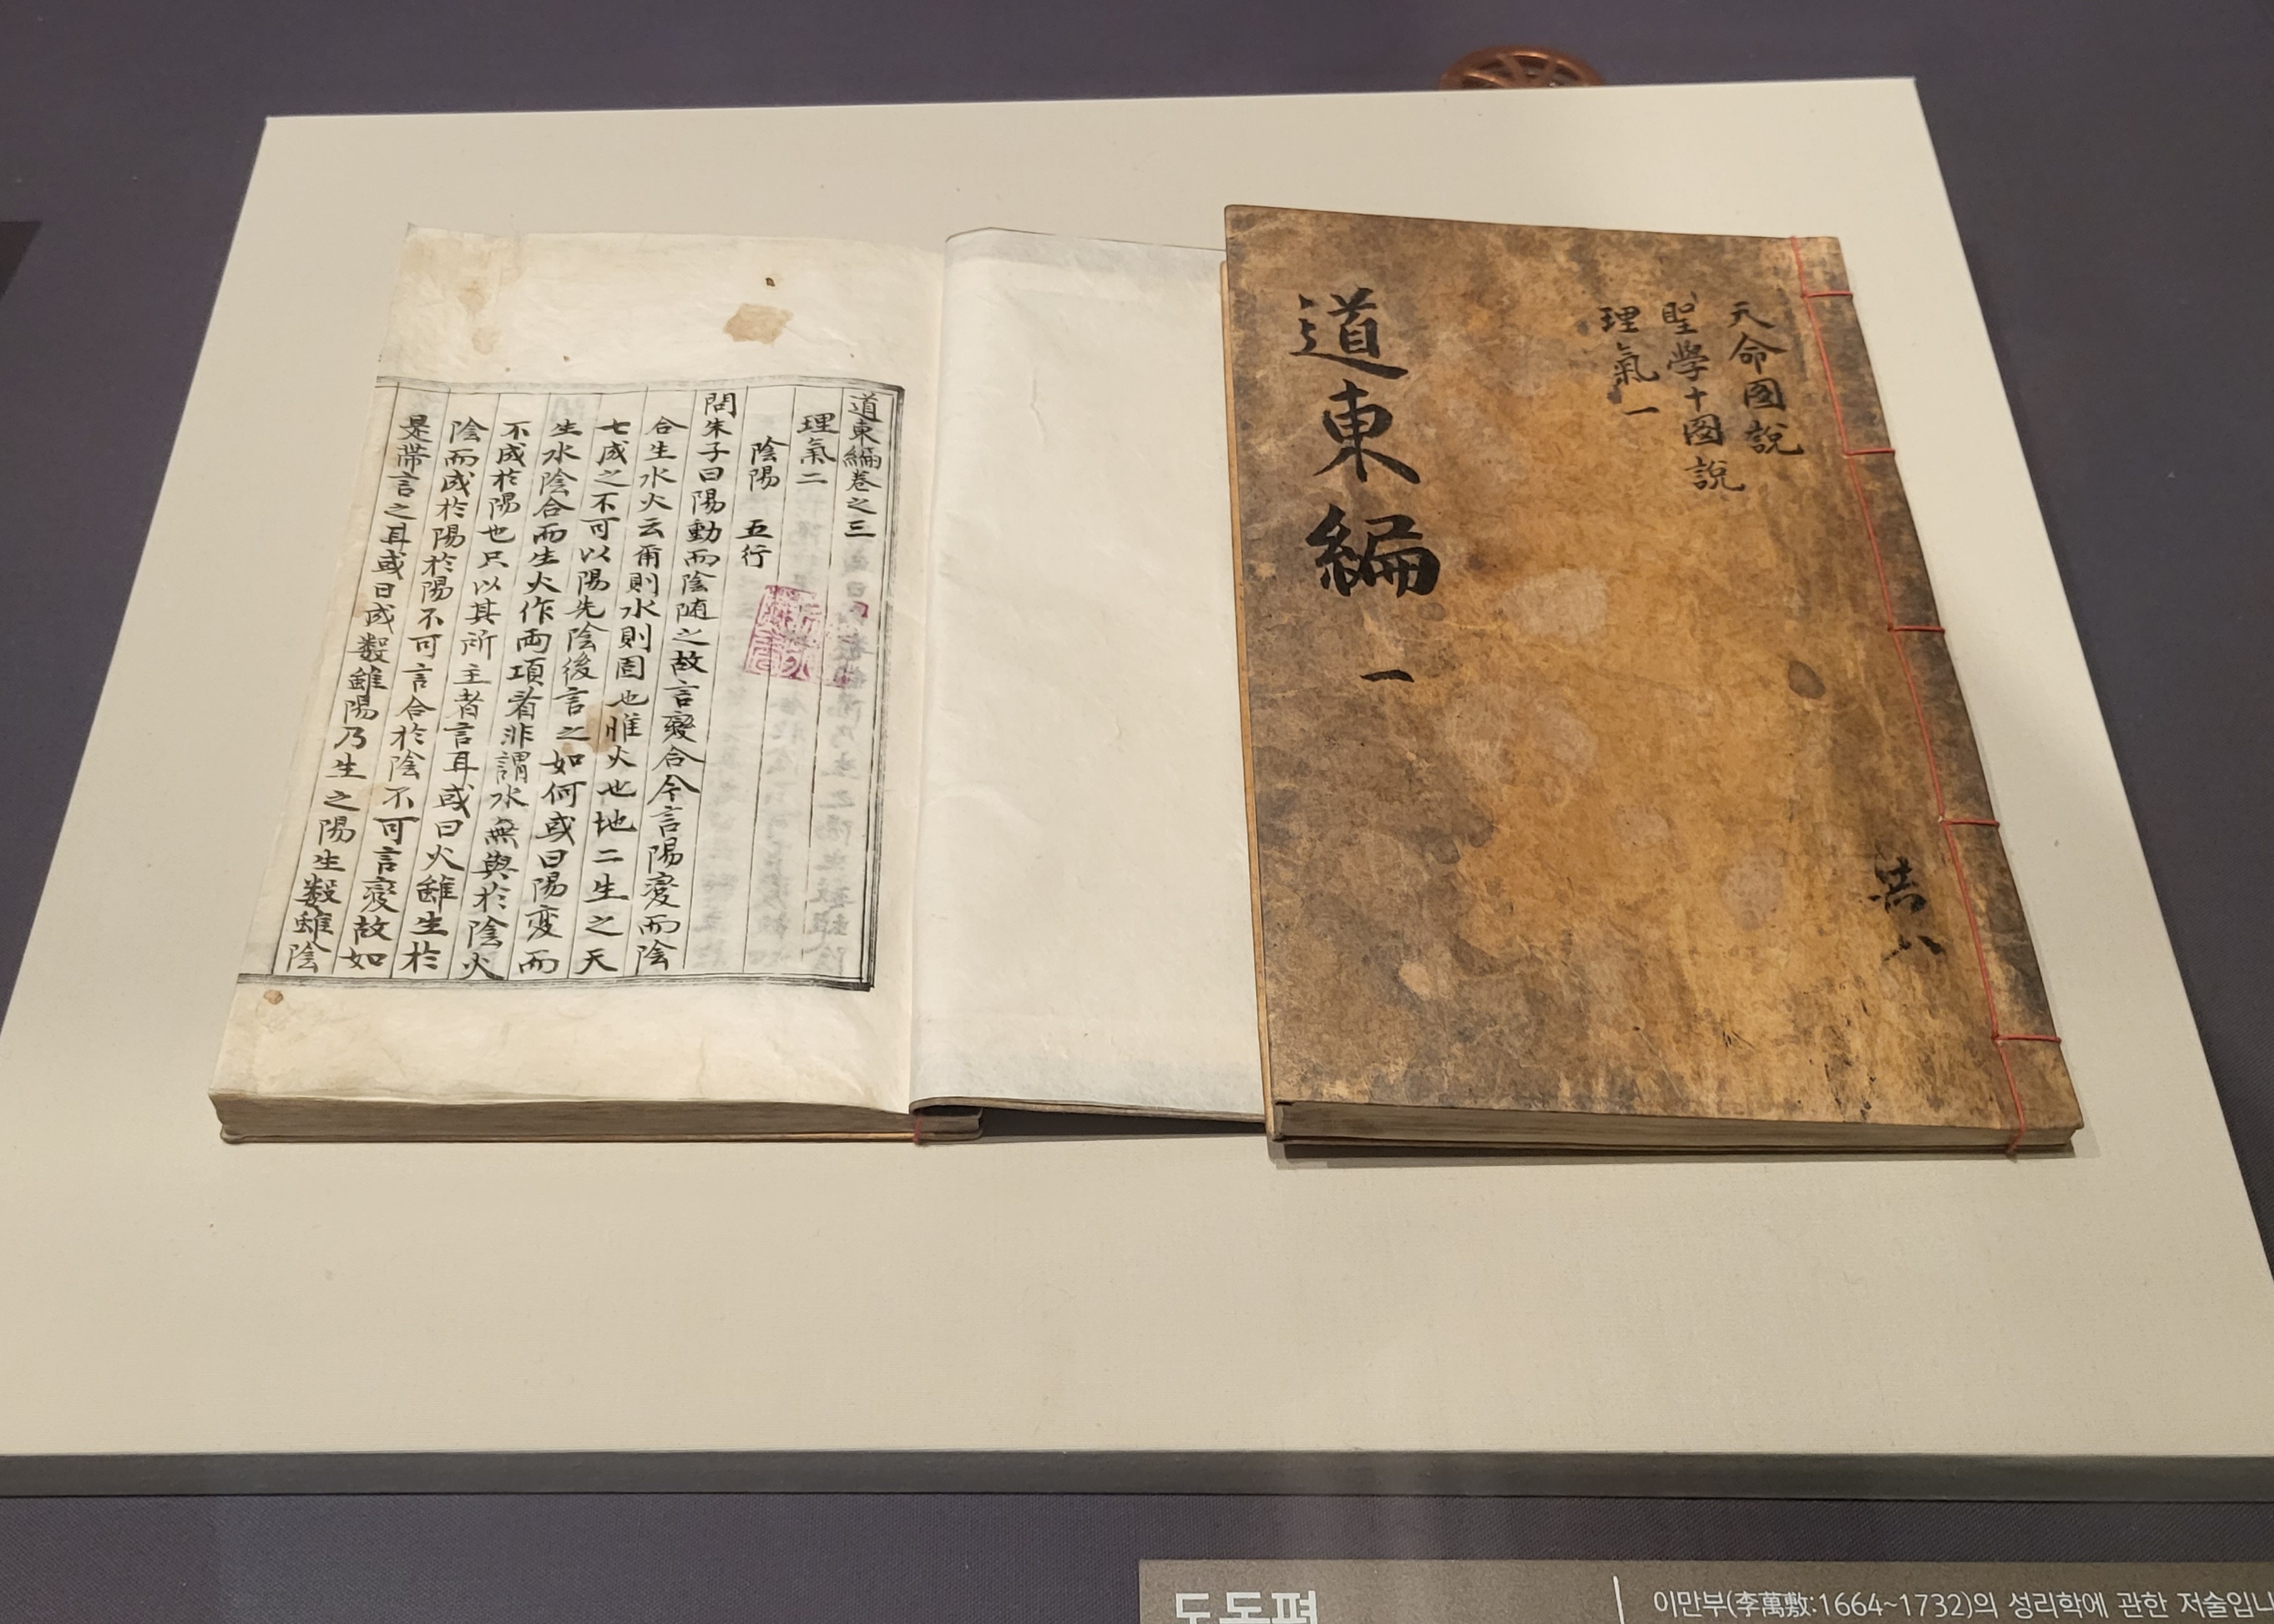 天命圖說
聖學十圖說
理氣一
道東編 一
共八
道東編卷之三
理氣二
陰陽 五行
問朱子曰陽動而陰随之故言變合今言陽變而陰
合生水火云爾則水則固也惟火也地二生之天
七成之不可以陽先陰後言之如何或曰陽変而
生水陰合而生火作兩項看非謂水無與於陰火
不成於陽也只以其所主者言耳或曰火雖生於
陰而成於陽於陽不可言合於陰不可言變故如
是帶言之耳或曰成數雖陽乃生之陽生數雖陰
도동편
이만부(李萬敷:1664~1732)의 성리학에 관한 저술입니